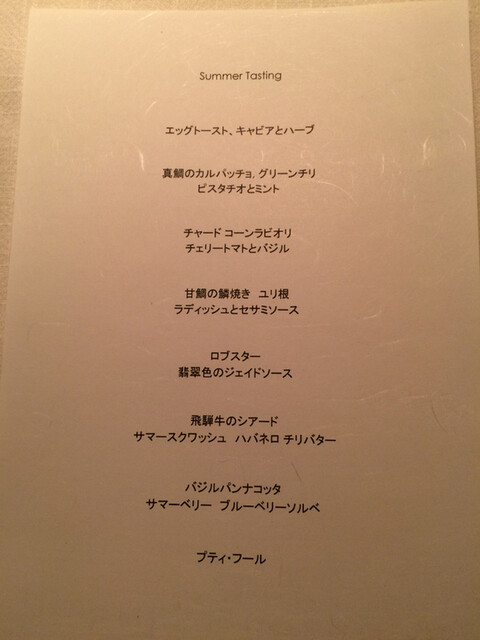 Summer Tasting
エッグトースト、キャビアとハーブ
真鯛のカルパッチョ, グリーンチリ
ピスタチオとミント
チャード コーンラビオリ
チェリートマトとバジル
甘鯛の鱗焼き　ユリ根
ラディッシュとセサミソース
ロブスター
翡翠色のジェイドソース
飛騨牛のシアード
サマースクワッシュ　ハバネロ チリバター
バジルパンナコッタ
サマーベリー　ブルーベリーソルベ
プティ・フール